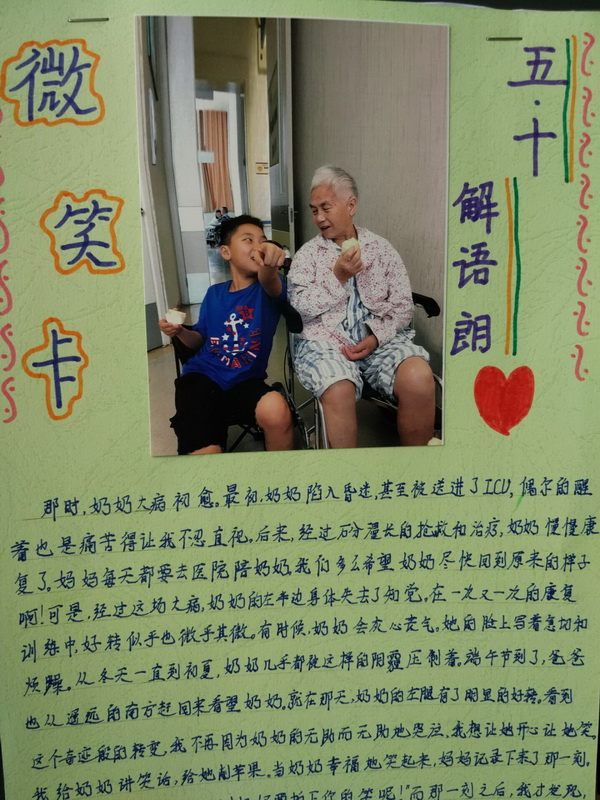 微笑卡
五·十
解语朗
那时,奶奶大病初愈。最初,奶奶陷入昏迷,甚至被送进了ICU,偶尔的醒
着也是痛苦得让我不忍直视。后来,经过万分漫长的抢救和治疗,奶奶慢慢康
复了。妈妈每天都要去医院陪奶奶,我们多么希望奶奶尽快回到原来的样子
啊!可是,经过这场大病,奶奶的左半边身体失去了知觉。在一次又一次的康复
训练中,好转似乎也微乎其微。有时候,奶奶会灰心丧气。她的脸上写着急切和
烦躁。从冬天一直到初夏,奶奶几乎都被这样的阴霾压制着。端午节到了,爸爸
也从遥远的南方赶回来看望奶奶。就在那天,奶奶的左腿有了明显的好转。看到
这个奇迹般的转变,我不再因为奶奶的无助而无助地哭泣,我想让她开心让她笑。
我给奶奶讲笑话,给她削苹果。当奶奶幸福地笑起来,妈妈记录下来了那一刻。
要拍下你的笑呢!"而那一刻之后,我才发现,